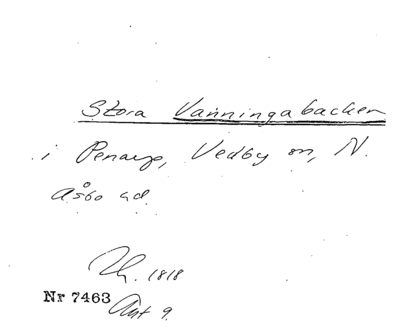 Stora Vanningabacken
i Penarp, Vedby sn, N.
Åsbo hd.
Th. 1818
Nr 7463
Akt 9.